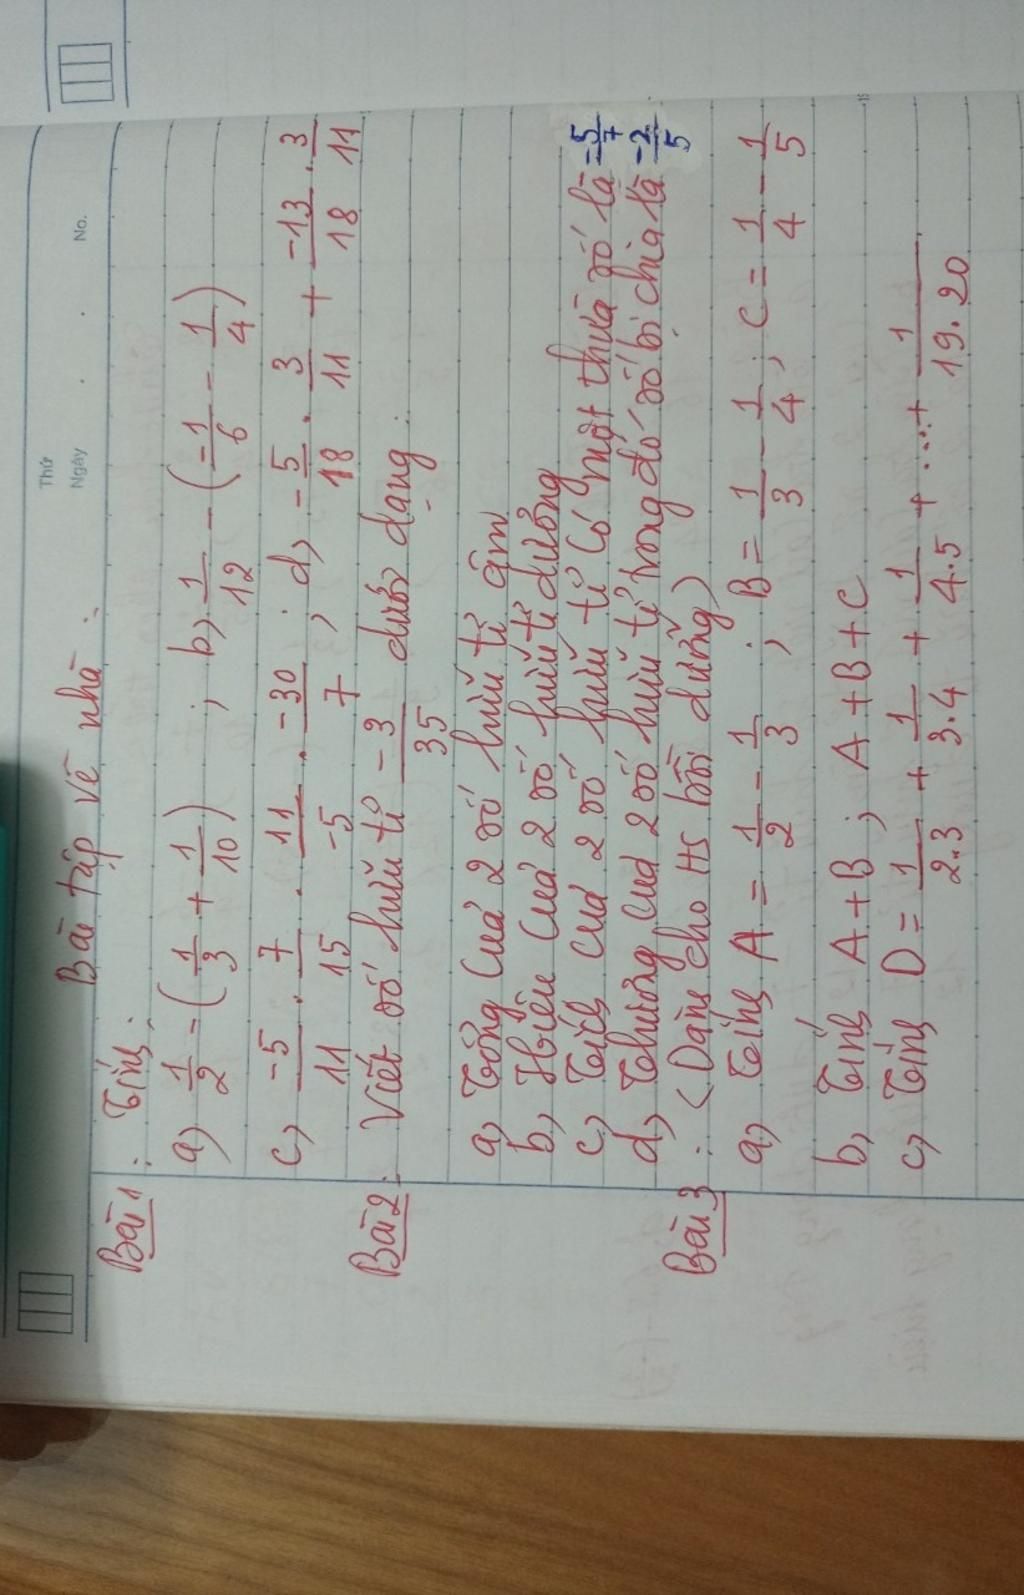 Thứ
Ngày . . No.
Bài tập về nhà:
Bài 1: Tính:
a, 1/2 - (1/3 + 1/10) ; b, 1/12 - (-1/6 - 1/4)
c, -5/11 . 7/15 . 11/-5 . -30/7 ; d, -5/18 . 3/11 + -13/18 . 3/11
Bài 2: Viết số hữu tỉ -3/35 dưới dạng:
a, Tổng của 2 số hữu tỉ âm
b, Hiệu của 2 số hữu tỉ dương
c, Tích của 2 số hữu tỉ có một thừa số là -5/7
d, Thương của 2 số hữu tỉ trong đó số bị chia là -2/5
Bài 3: (Dành cho HS bồi dưỡng)
a, Tính A = 1/2 - 1/3 ; B = 1/3 - 1/4 ; C = 1/4 - 1/5
b, Tính A + B ; A + B + C
c, Tính D = 1/2.3 + 1/3.4 + 1/4.5 + .... + 1/19.20